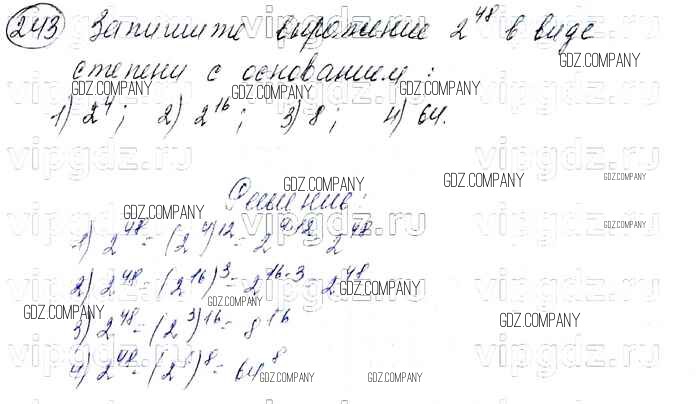 243 Запишите выражение 2^48 в виде
степени с основанием:
1) 2^4; 2) 2^16; 3) 8; 4) 64.
Решение:
1) 2^48 = (2^4)^12 = 2^4·12 = 2^48
2) 2^48 = (2^16)^3 = 2^16·3 = 2^48
3) 2^48 = (2^3)^16 = 8^16
4) 2^48 = (2^6)^8 = 64^8
vipgdz.ru
GDZ.COMPANY